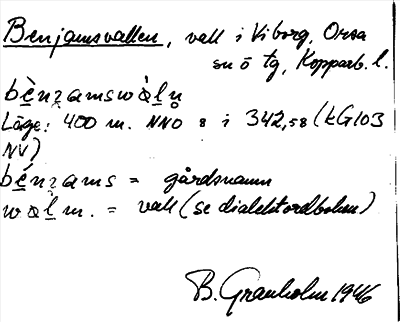 Benjamsvallen, vall i Viborg, Orsa
sn o tg, Kopparb. l.
bènzamswàlṇ
Läge: 400 m. NNO 8 i 342,58 (kG103
NV)
bénzams = gårdsnamn
walm. = vall (se dialektordboken)
B. Granholm 1946